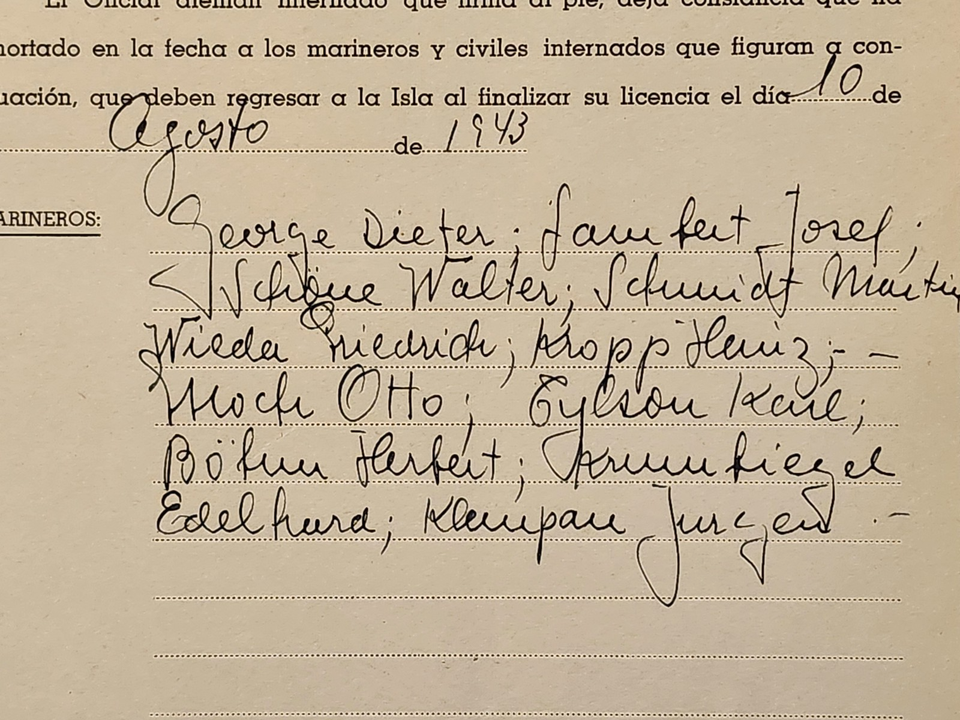 El Oficial alemán internado que firma al pie, deja constancia que ha
hortado en la fecha a los marineros y civiles internados que figuran a con-
uación, que deben regresar a la Isla al finalizar su licencia el día 10 de
Agosto de 1943
ARINEROS: George Dieter; Lambert Josef;
Schöne Walter; Schmidt Martin
Wieda Friedrich; Kropp Heinz;- -
Moch Otto; Eylson Karl;
Böhm Herbert; Krumbiegel
Edelhard; Klempau Jürgen .-